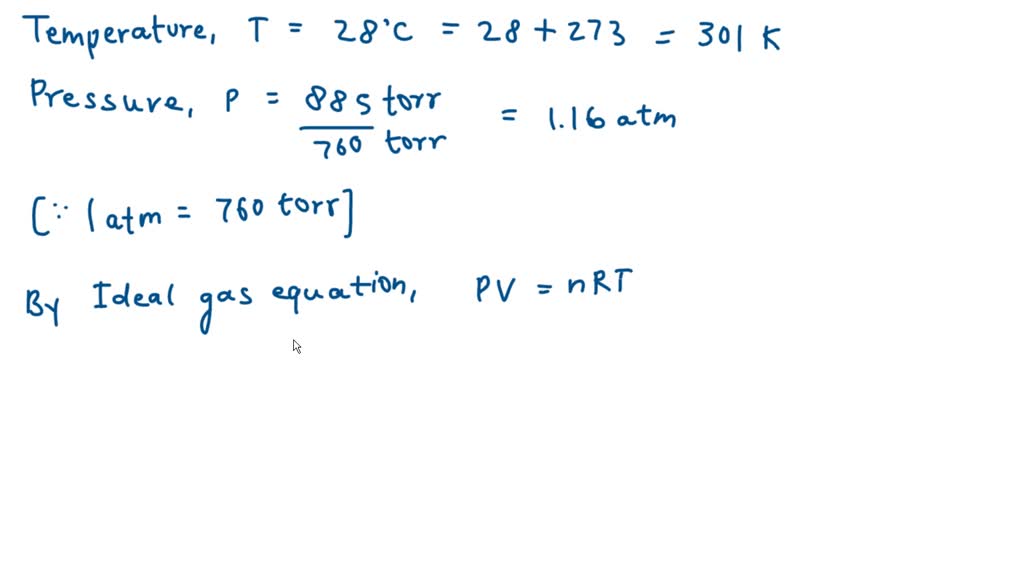 Temperature, T = 28°C = 28 + 273 = 301 K
Pressure, P = 885 torr / 760 torr = 1.16 atm
[∵ 1 atm = 760 torr]
By Ideal gas equation, PV = nRT